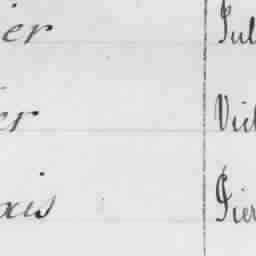 ier Jul
er Vict
ais Pier